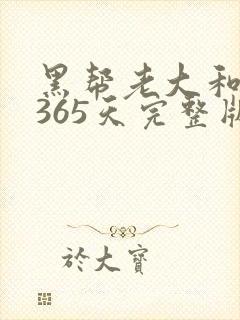 黑帮老大和
365天完整版
於大寶